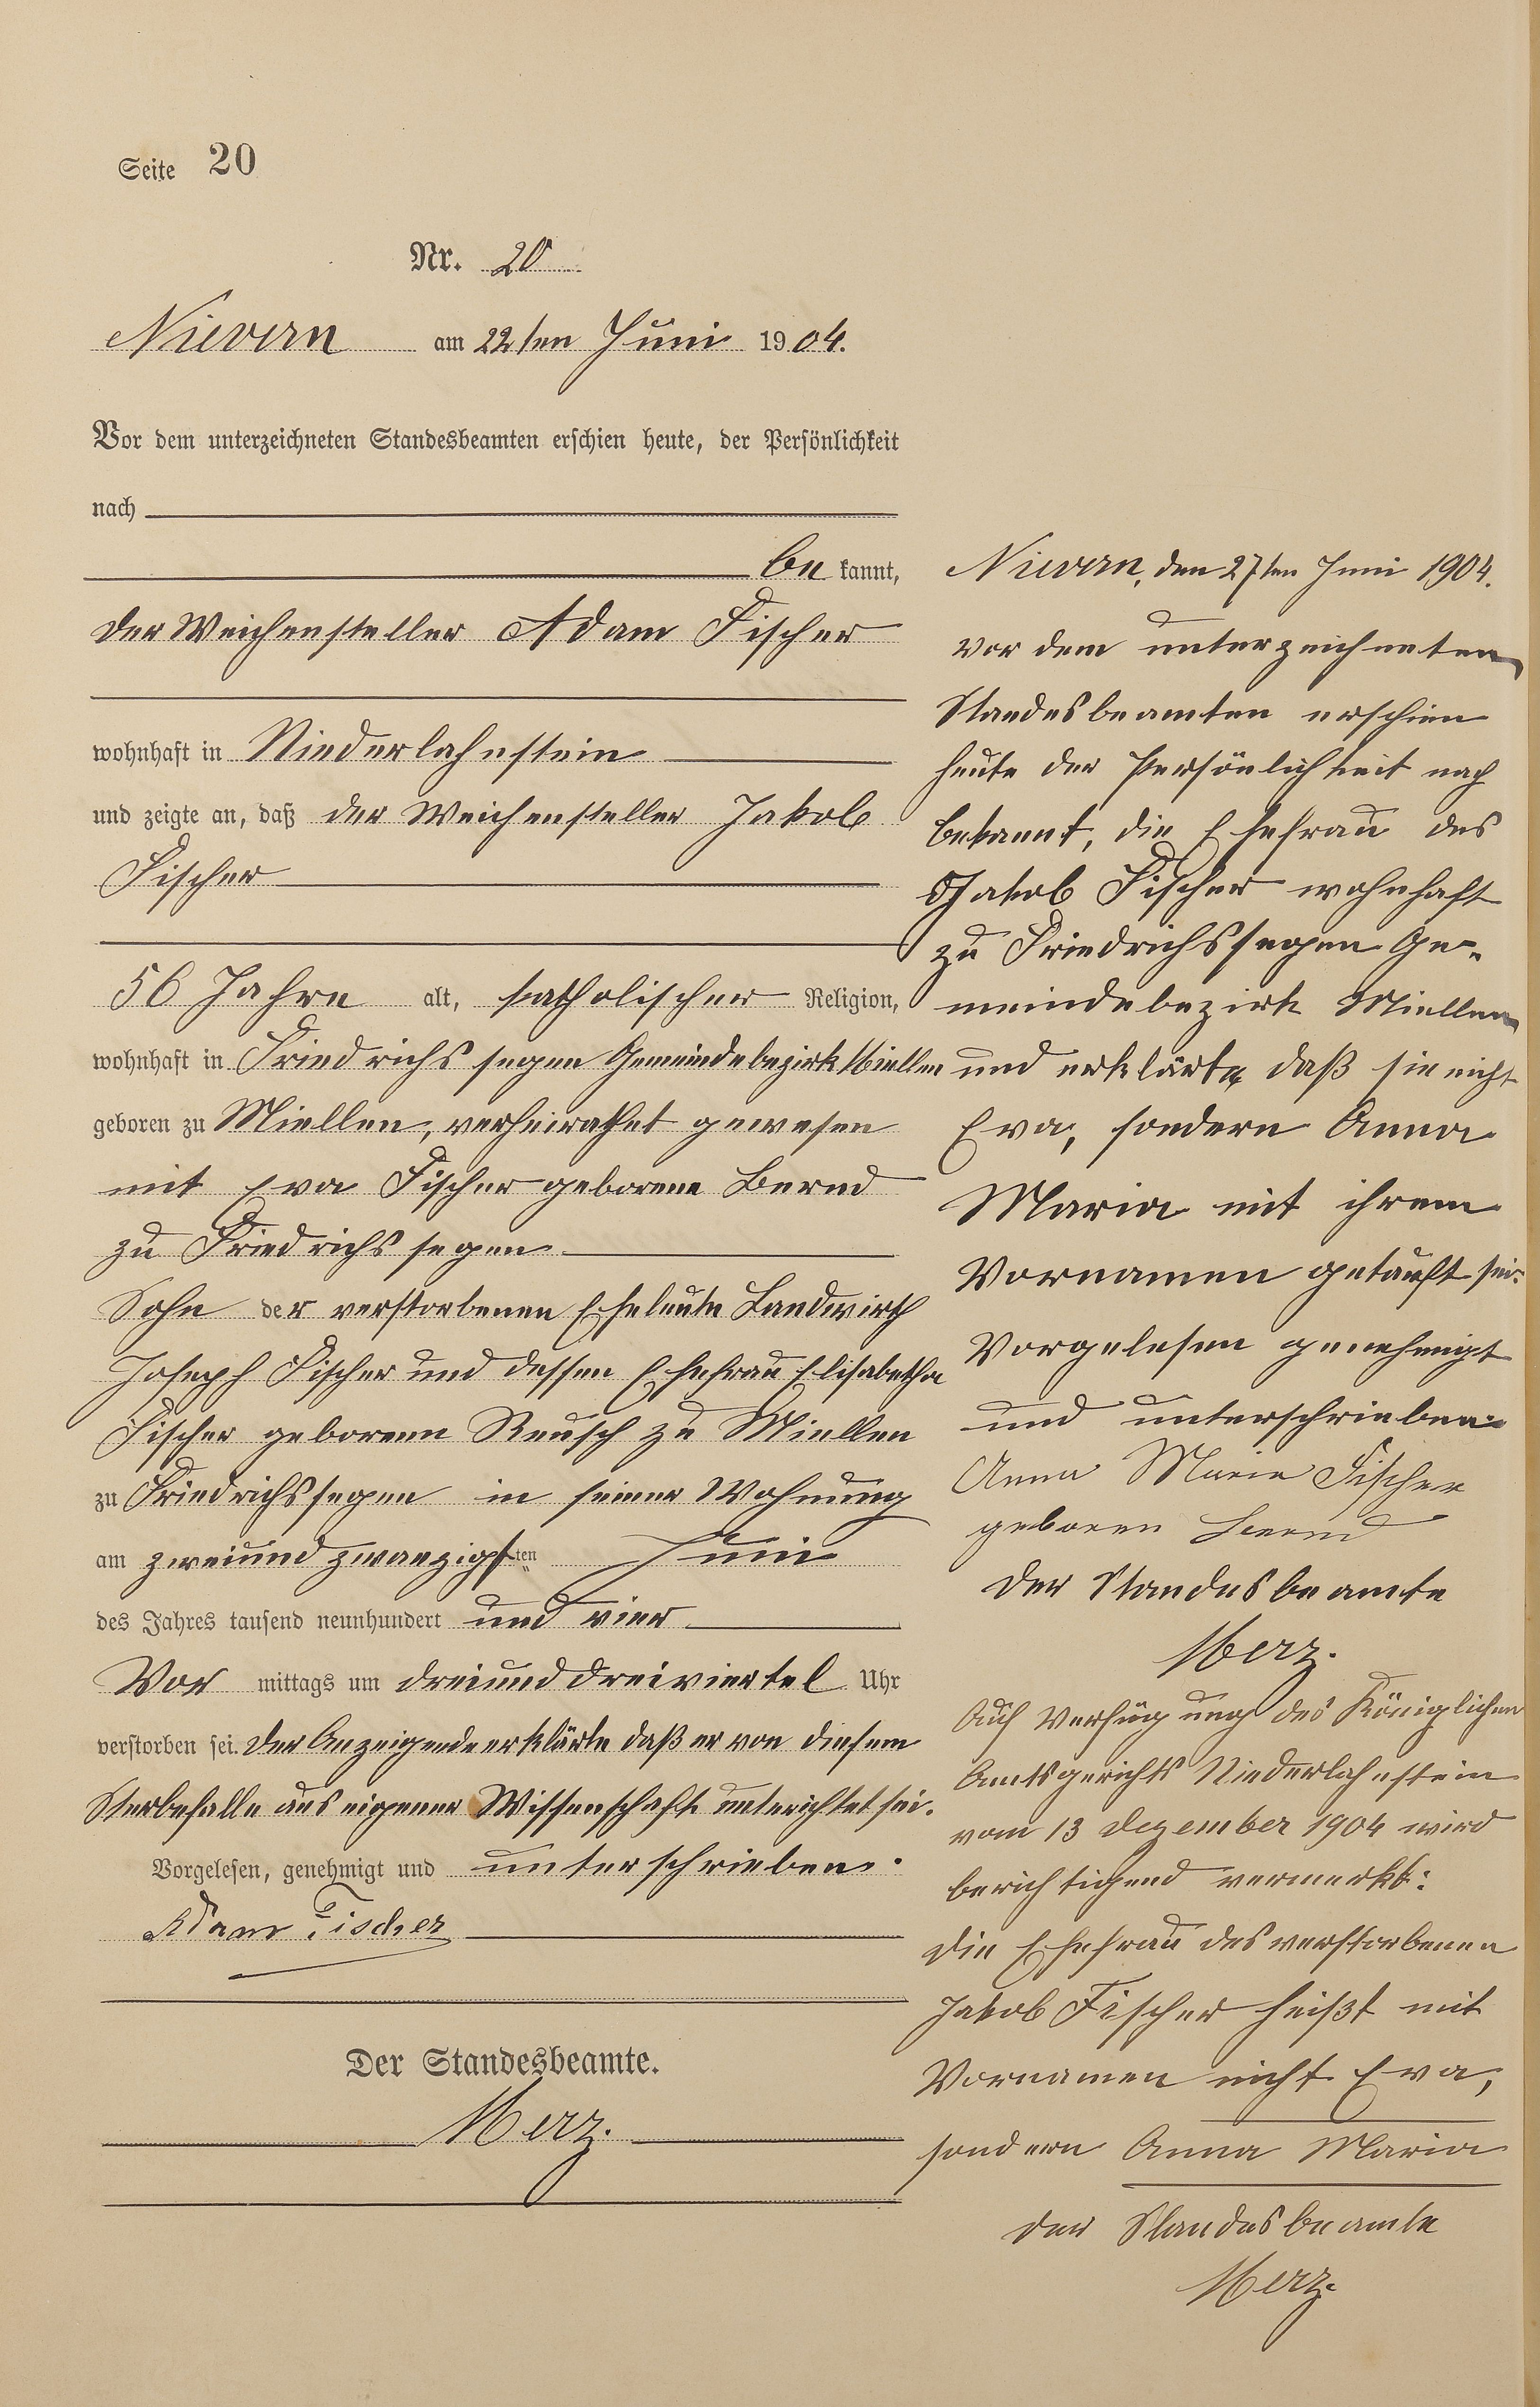 Seite 20
Nr. 20
Nievern am 22ten Juni 1904.
Vor dem unterzeichneten Standesbeamten erschien heute, der Persönlichkeit
nach
be kannt,
der Weichensteller Adam Fischer
wohnhaft in Niederlahnstein
und zeigte an, daß der Weichensteller Jakob
Fischer
56 Jahre alt, katholischer Religion,
wohnhaft in Friedrichssegen Gemeindebezirk Miellen
geboren zu Miellen, verheirathet gewesen
mit Eva Fischer geborene Bernd
zu Friedrichssegen
Sohn der verstorbenen Eheleute Landwirth
Joseph Fischer und dessen Ehefrau Elisabetha
Fischer geborenn Reusch zu Miellen
zu Friedrichssegen in seiner Wohnung
am zweiundzwanzigsten Juni
des Jahres tausend neunhundert und vier
Vor mittags um dreiunddreiviertel Uhr
verstorben sei. Der Anzeigende erklärte daß er von diesem
Sterbefalle aus eigener Wissenschaft unterichtet sei.
Vorgelesen, genehmigt und unterschrieben.
Adam Fischer
Der Standesbeamte.
Merz.
Nievern, den 27ten Juni 1904.
Vor dem unterzeichneten
Standesbeamten erschien
heute der Persönlichkeit nach
bekannt, die Ehefrau des
Jakob Fischer wohnhaft
zu Friedrichssegen Ge-
meindebezirk Miellen
und erklärte, daß sie nicht
Eva, sondern Anna
Maria mit ihrem
Vornamen getauft sei.
Vorgelesen genehmigt
und unterschrieben
Anna Maria Fischer
geboren Bernd
Der Standesbeamte
Merz.
Auf Verfügung des Königlichen
Amtsgerichts Niederlahnstein
vom 13 Dezember 1904 wird
berichtigend vermerkt:
Die Ehefrau des verstorbenen
Jakob Fischer heißt mit
Vornamen nicht Eva,
sondern Anna Maria
Der Standesbeamte
Merz.